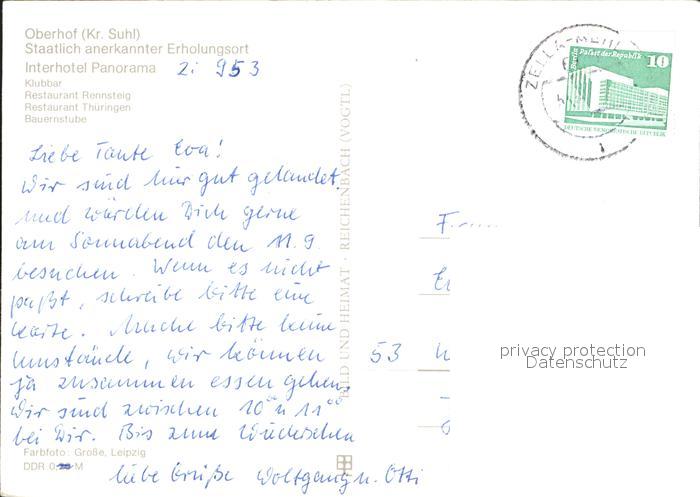 Oberhof (Kr. Suhl)
Staatlich anerkannter Erholungsort
Interhotel Panorama Zi 953
Klubbar
Restaurant Rennsteig
Restaurant Thüringen
Bauernstube
Liebe Tante Eva!
Wir sind hier gut gelandet
und würden Dich gerne
am Sonnabend den 11.9.
besuchen. Wenn es nicht
paßt, schreibe bitte eine
Karte. Mache bitte keine
Umstände, wir können
ja zusammen essen gehen.
Wir sind zwischen 10⁰⁰ u 11⁰⁰
bei Dir. Bis zum Wiedersehen
liebe Grüße Wolfgang u. Otti
Farbfoto: Große, Leipzig
DDR 0, M
BILD UND HEIMAT · REICHENBACH (VOGTL)
ZELLA-MEHL
Berlin Palast der Republik
10
DEUTSCHE DEMOKRATISCHE REPUBLIK
53
privacy protection
Datenschutz